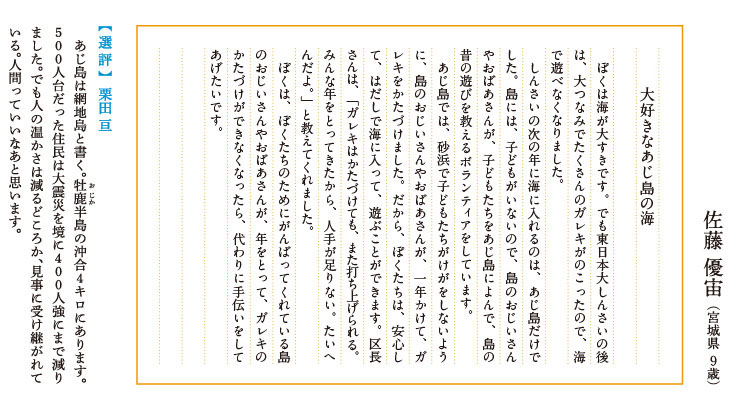 佐藤 優宙（宮城県 9歳）
大好きなあじ島の海
ぼくは海が大すきです。でも東日本大しんさいの後
は、大つなみでたくさんのガレキがのこったので、海
で遊べなくなりました。
しんさいの次の年に海に入れるのは、あじ島だけで
した。島には、子どもがいないので、島のおじいさん
やおばあさんが、子どもたちをあじ島によんで、島の
昔の遊びを教えるボランティアをしています。
あじ島では、砂浜で子どもたちがけがをしないよう
に、島のおじいさんやおばあさんが、一年かけて、ガ
レキをかたづけました。だから、ぼくたちは、安心し
て、はだしで海に入って、遊ぶことができます。区長
さんは、「ガレキはかたづけても、また打ち上げられる。
みんな年をとってきたから、人手が足りない。たいへ
んだよ。」と教えてくれました。
ぼくは、ぼくたちのためにがんばってくれている島
のおじいさんやおばあさんが、年をとって、ガレキの
かたづけができなくなったら、代わりに手伝いをして
あげたいです。
【選評】 栗田 亘
あじ島は網地島と書く。牡鹿半島の沖合4キロにあります。
おじか
500人台だった住民は大震災を境に400人強にまで減り
ました。でも人の温かさは減るどころか、見事に受け継がれて
いる。人間っていいなあと思います。